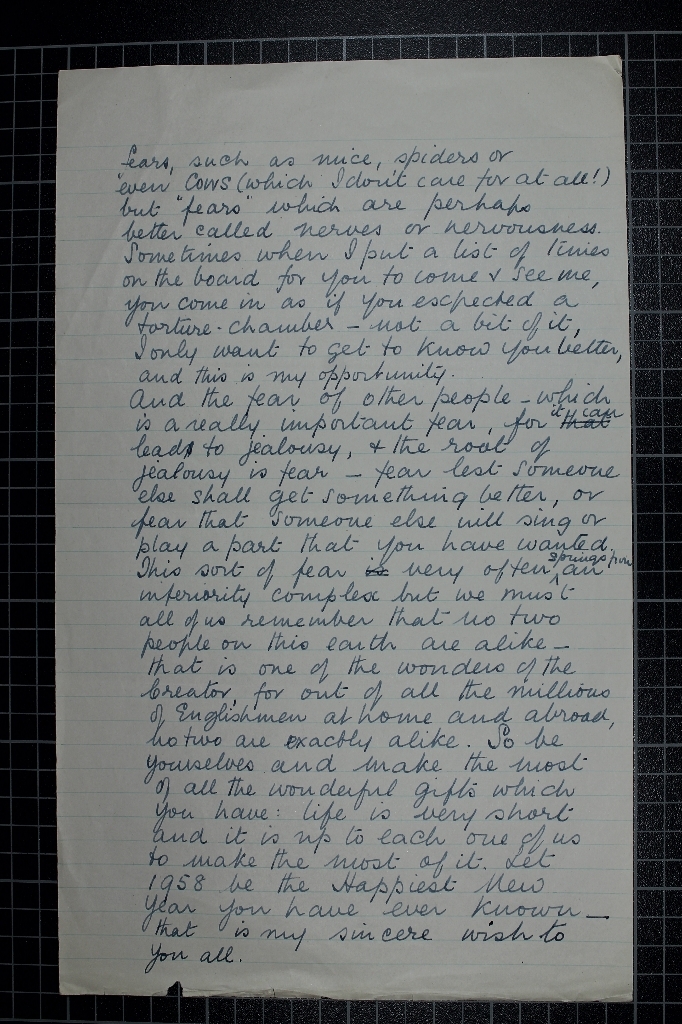 fears, such as mice, spiders or
even Cows (which I don't care for at all!)
but "fears" which are perhaps
better called nerves or nervousness.
Sometimes when I put a list of times
on the board for you to come & see me,
you come in as if you escpected a
torture-chamber – not a bit of it,
I only want to get to know you better,
and this is my opportunity.
And the fear of other people – which
is a really important fear, for that it can
leads to jealousy, & the root of
jealousy is fear – fear lest someone
else shall get something better, or
fear that someone else will sing or
play a part that you have wanted.
This sort of fear is very often springs from an
inferiority complex but we must
all of us remember that no two
people on this earth are alike –
that is one of the wonders of the
Creator, for out of all the millions
of Englishmen at home and abroad,
no two are exactly alike. So be
yourselves and make the most
of all the wonderful gifts which
you have: life is very short
and it is up to each one of us
to make the most of it. Let
1958 be the Happiest New
Year you have ever known –
that is my sincere wish to
you all.